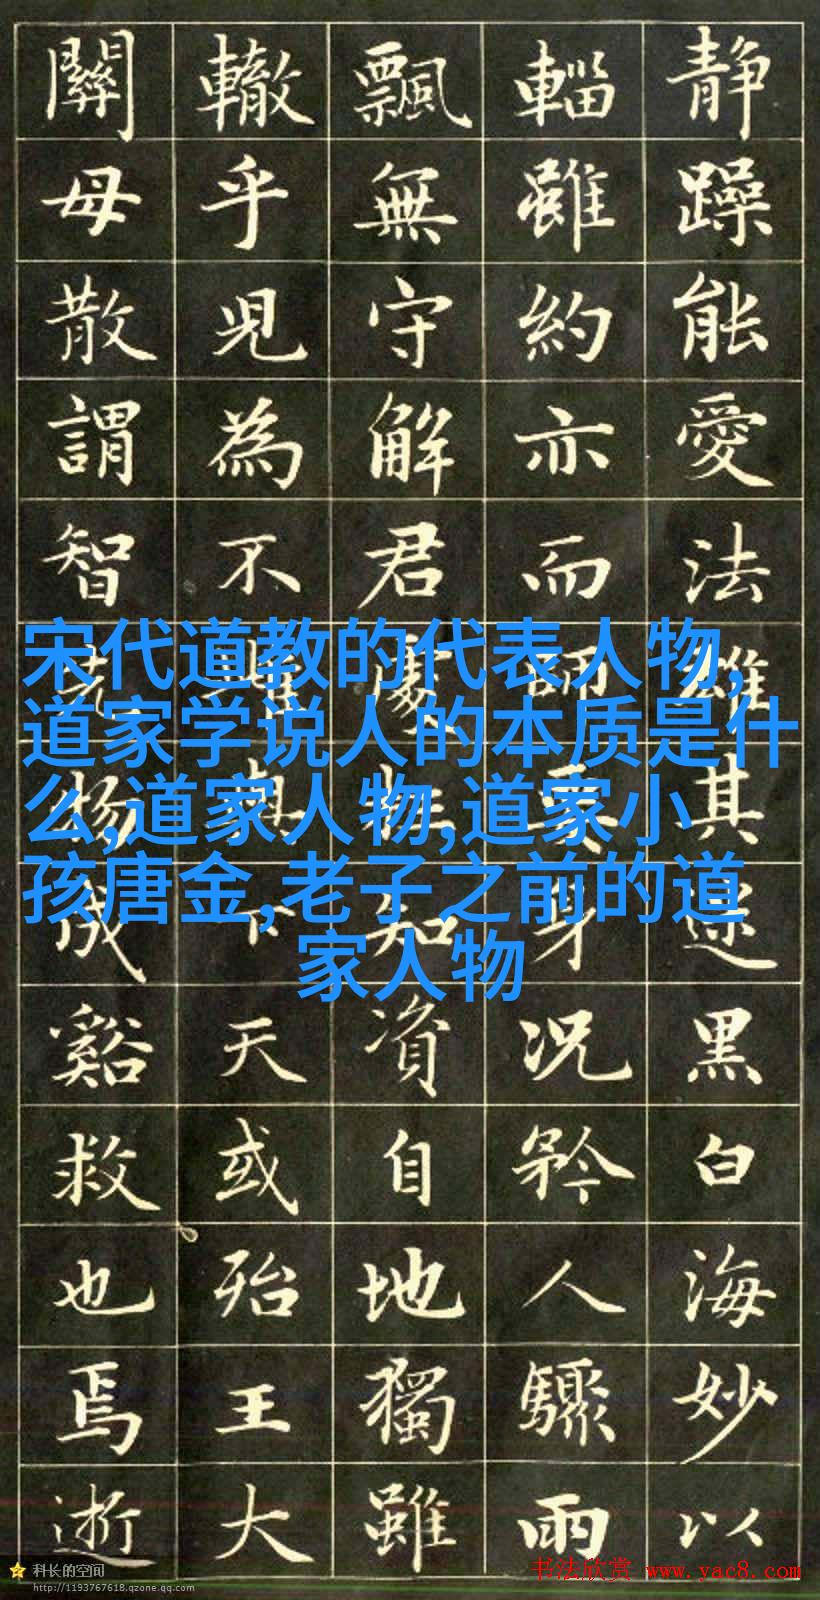 静躁能愛法雄其黑白海妙以
輜雖約亦而師要身况矜人驟雨
飄無守解君處知資自地獨雖
轍乎児為不下天或殆王大
關母散謂智物成谿救也焉逝
宋代道教的代表人物,
道家学说人的本质是什
么,道家人物,道家小
孩唐金,老子之前的道
家人物
科长的空间
http://1193767618.qzone.qq.com
书法欣赏 www.yac8.com